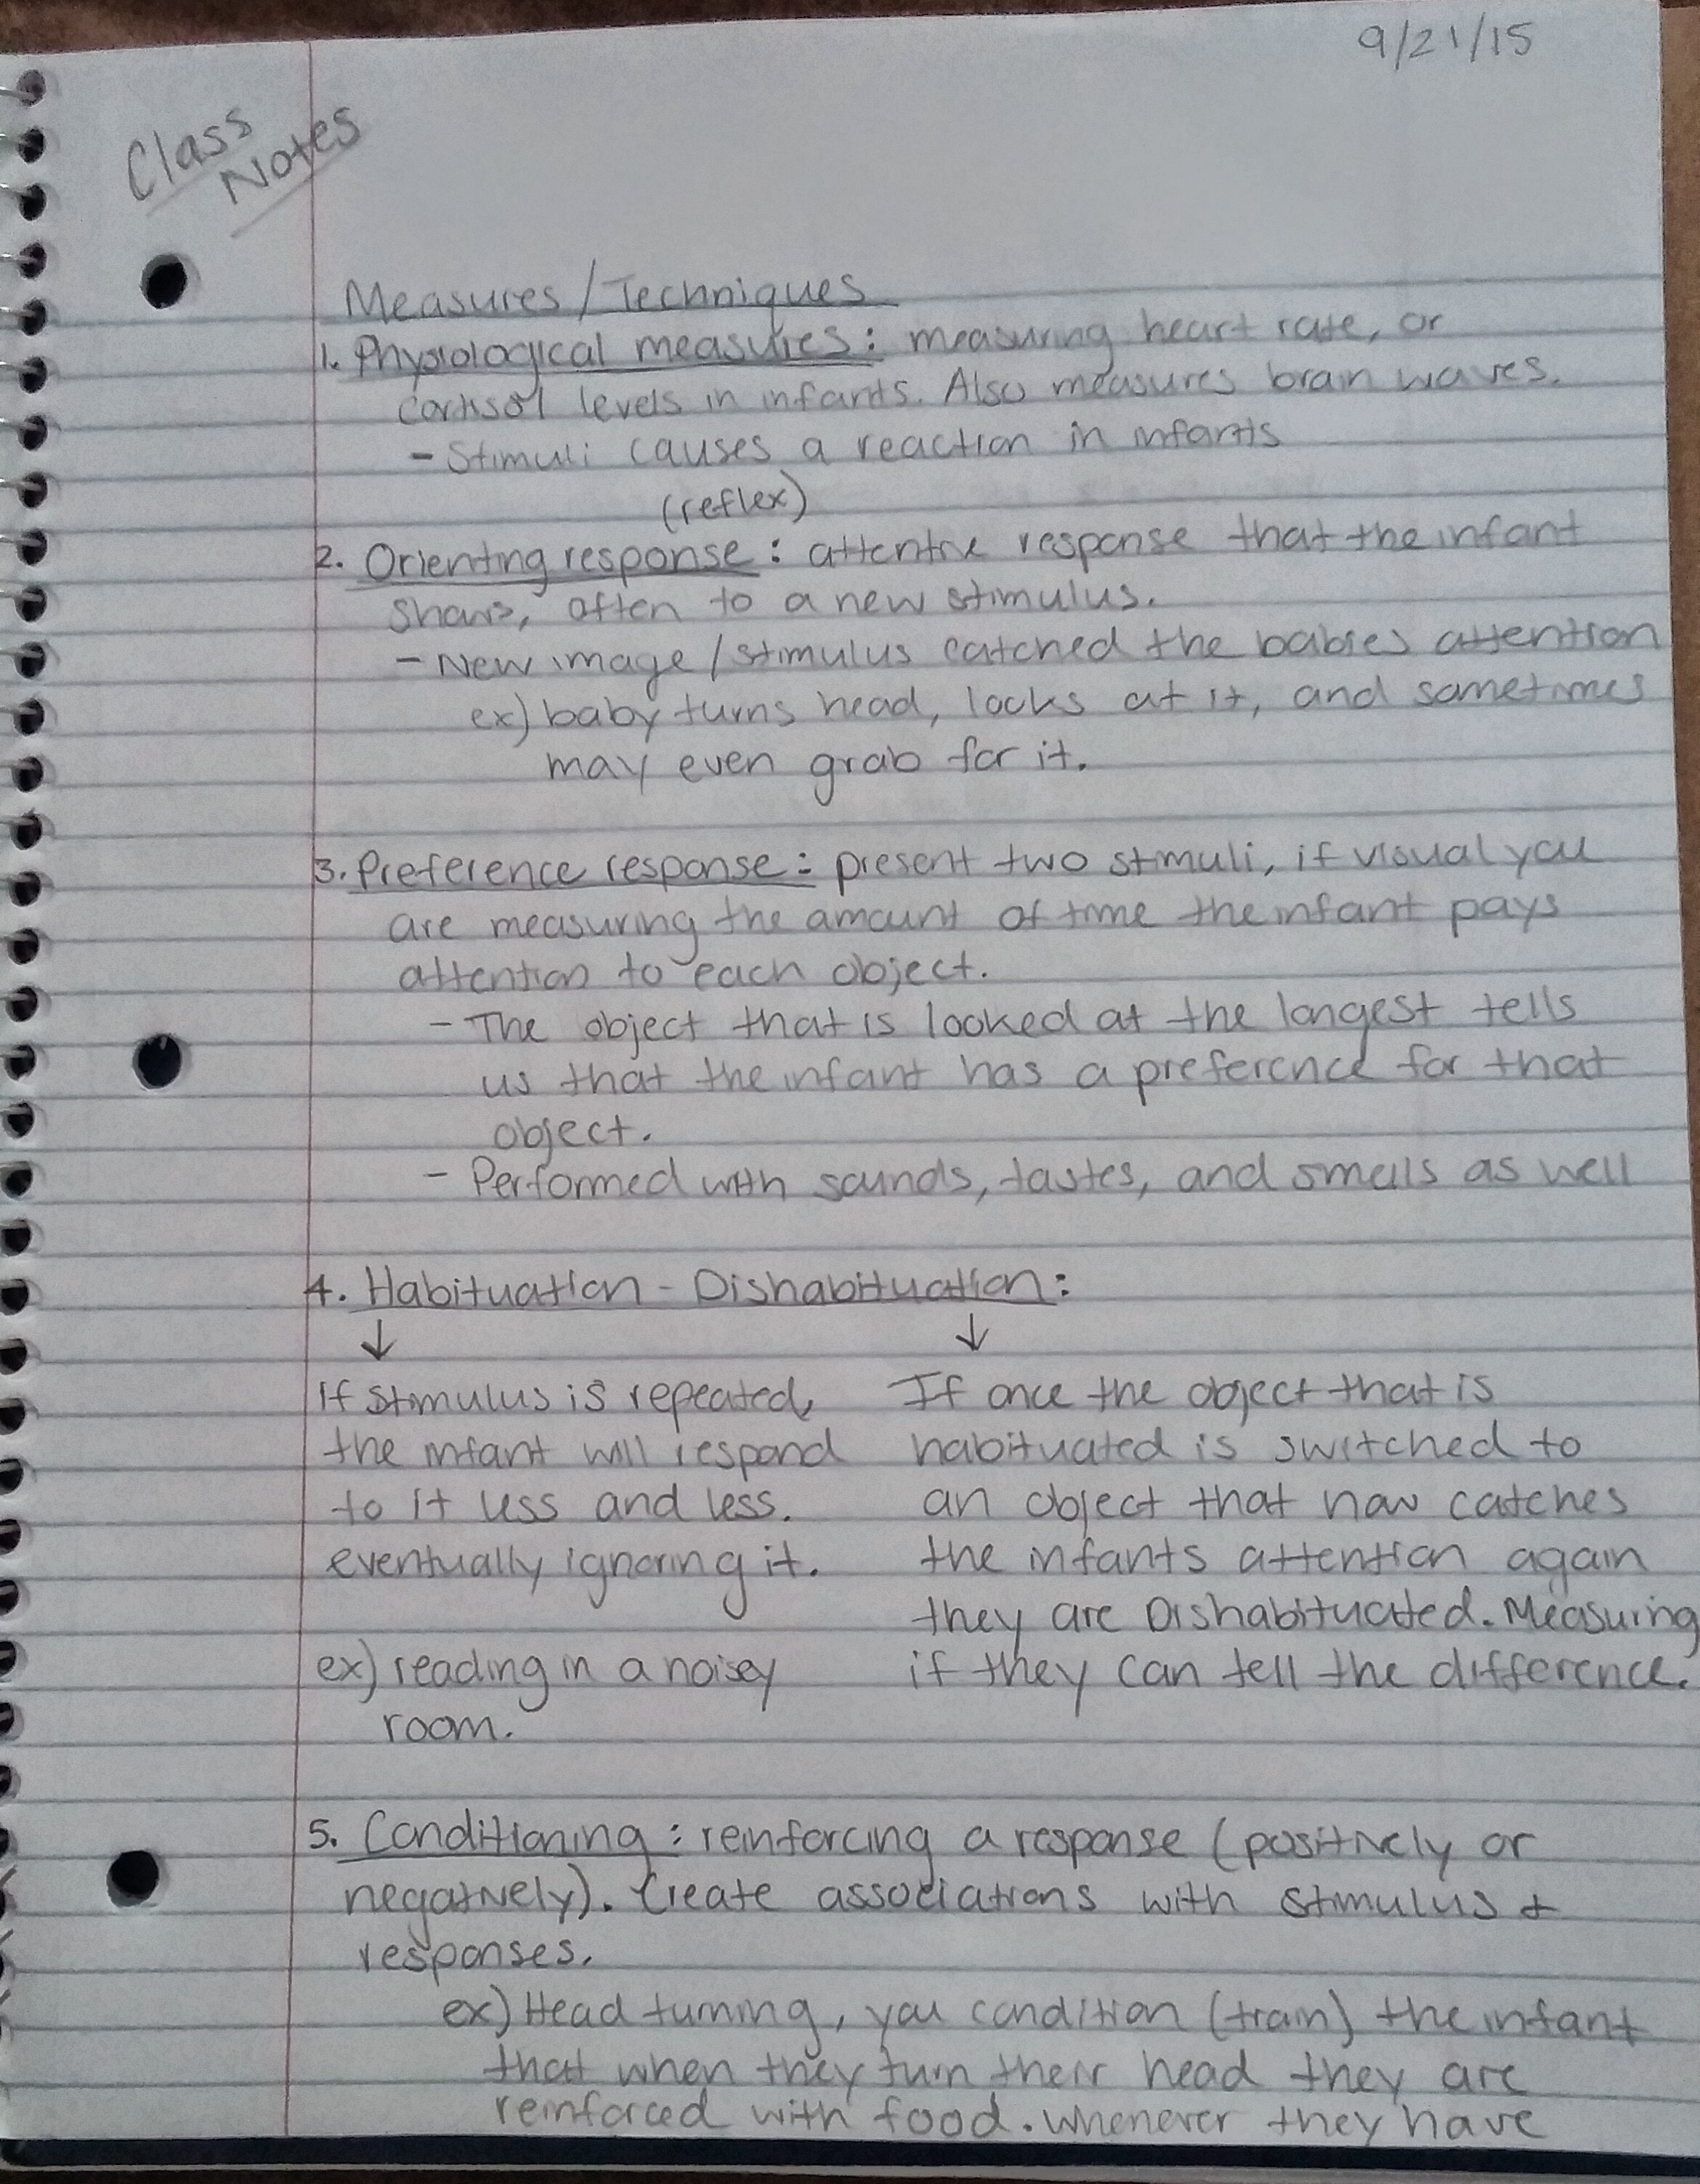 9/21/15
Class
Notes
Measures/Techniques
1. Physiological measures: measuring heart rate, or
cortisol levels in infants. Also measures brain waves.
- Stimuli causes a reaction in infants
(reflex)
2. Orienting response: attentive response that the infant
shows, often to a new stimulus.
- New image/stimulus catched the babies attention
ex) baby turns head, looks at it, and sometimes
may even grab for it.
3. Preference response: present two stimuli, if visual you
are measuring the amount of time the infant pays
attention to each object.
- The object that is looked at the longest tells
us that the infant has a preference for that
object.
- Performed with sounds, tastes, and smells as well
4. Habituation - Dishabituation:
↓ ↓
If stimulus is repeated,
the infant will respond
to it less and less.
eventually ignoring it.
ex) reading in a noisey
room.
If once the object that is
habituated is switched to
an object that now catches
the infants attention again
they are Dishabituated. Measuring
if they can tell the difference.
5. Conditioning: reinforcing a response (positively or
negatively). Create associations with stimulus &
responses.
ex) Head turning, you condition (train) the infant
that when they turn their head they are
reinforced with food. Whenever they have